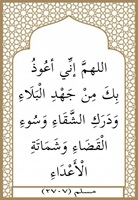 اللهمَّ إِنِّي أَعُوذُ
بِكَ مِنْ جَهْدِ الْبَلَاءِ
وَدَرَكِ الشَّقَاءِ وَسُوءِ
الْقَضَاءِ وَشَمَاتَةِ
الْأَعْدَاءِ
مسلم (٢٧٠٧)